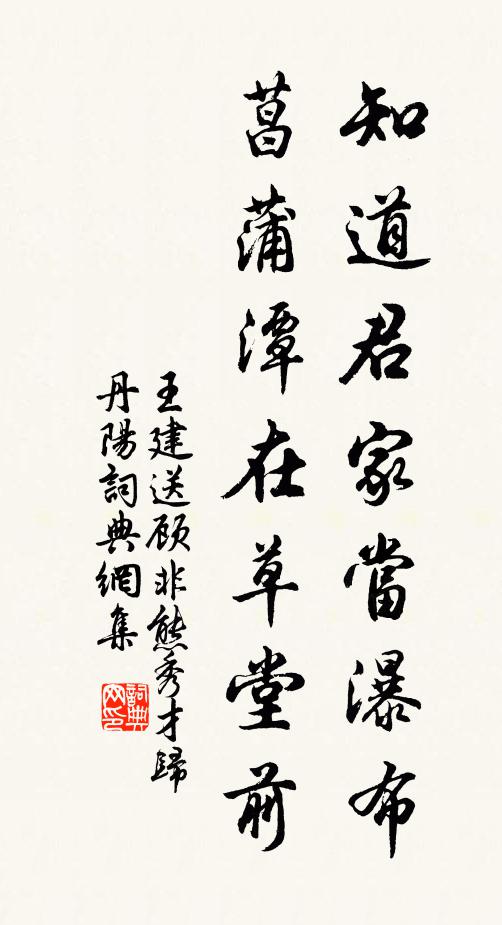 知道君家當瀑布
菖蒲潭在草堂前
王建送顾非熊秀才歸
丹陽詞典網集
詞典
网印